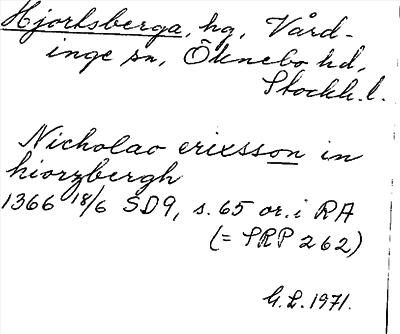 Hjortsberga, hg, Vård-
inge sn, Öknebo hd,
Stockh. l.
Nicholao erixsson in
hiorzbergh
1366 18/6 SD9, s. 65 or. i RA
(= SRP 262)
G. L. 1971.